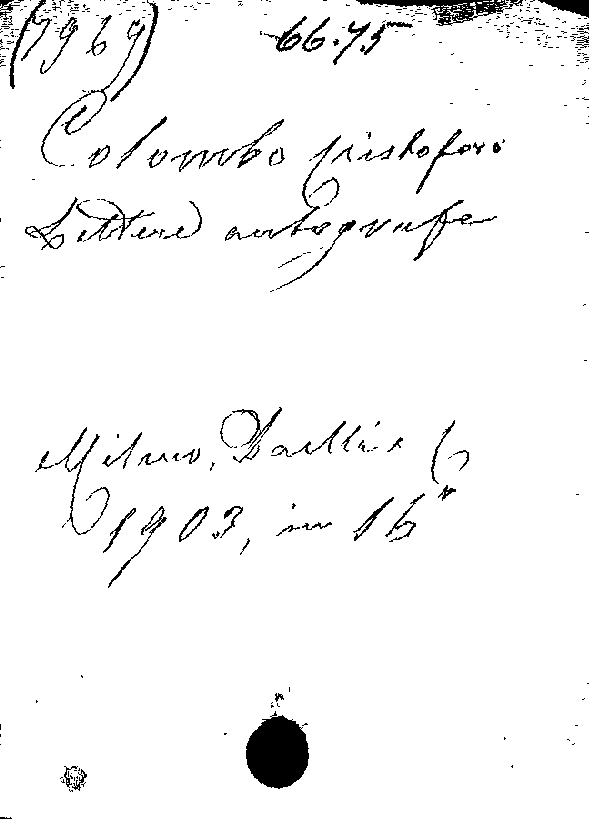 (7969) 66.75
Colombo Cristoforo
Lettere autografe
Milano, Daelli e C
1903, in 16°